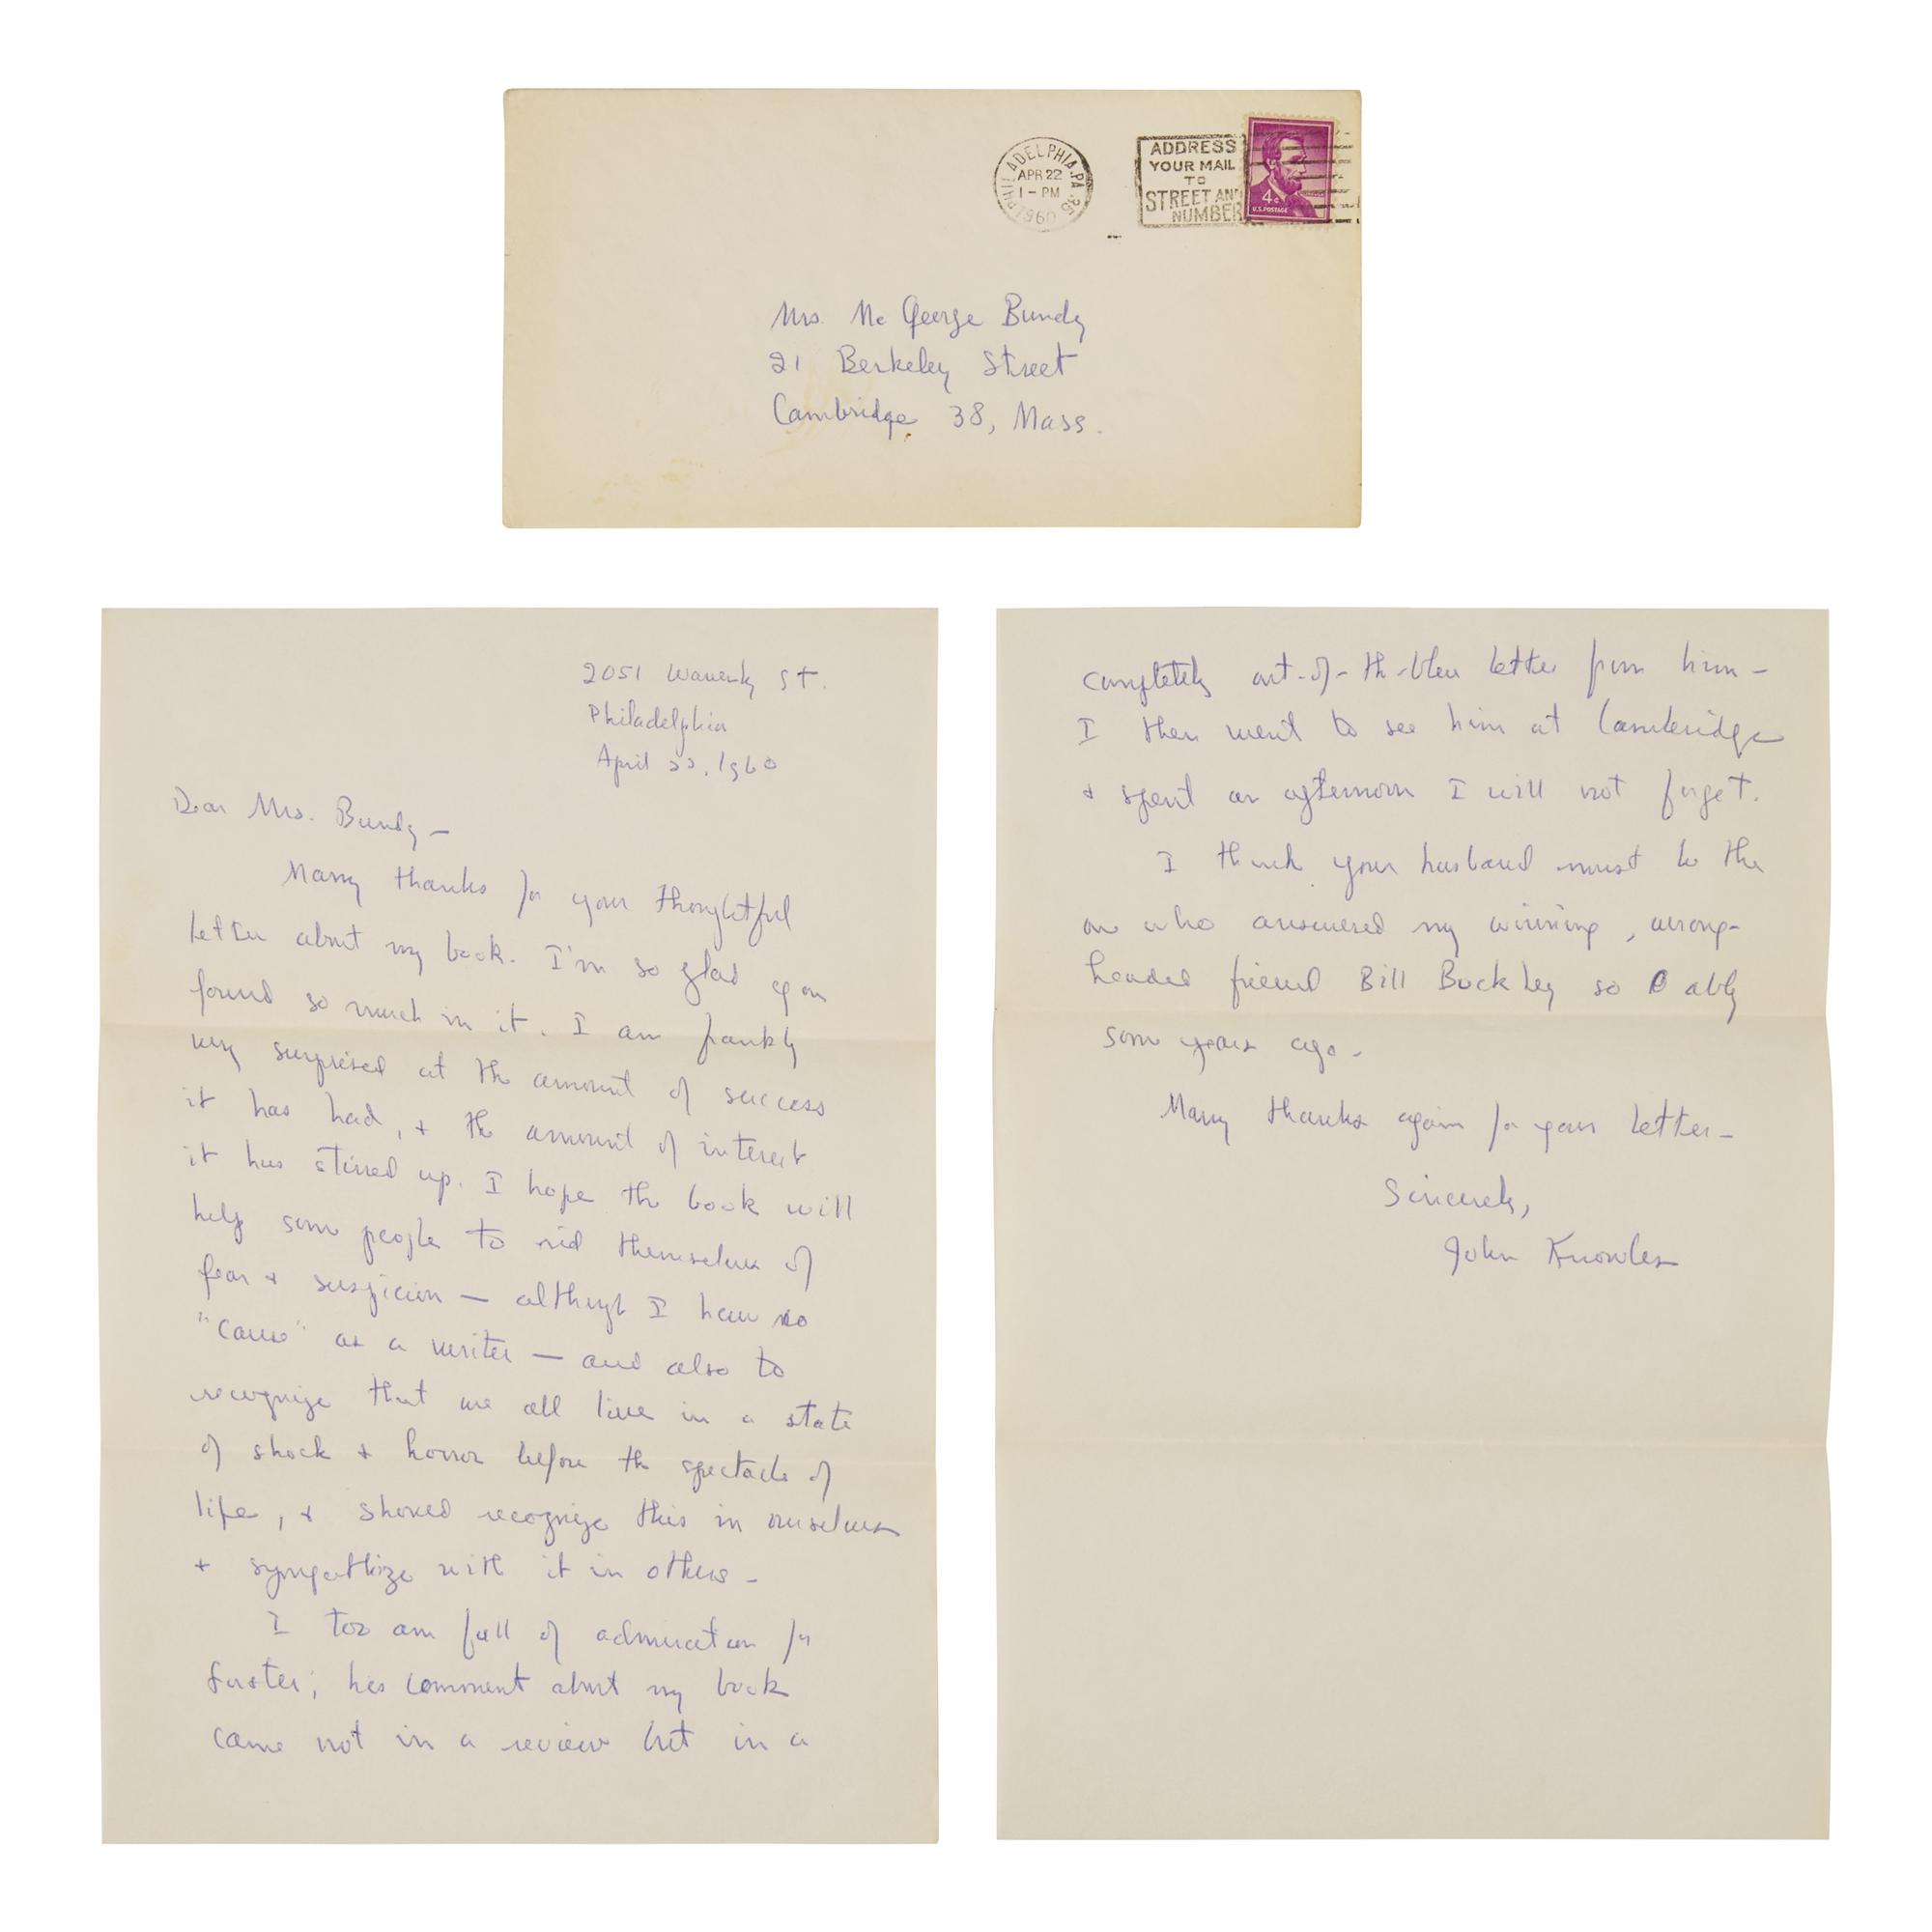 PHILADELPHIA, PA. 35
APR 22
1 - PM
1960
ADDRESS
YOUR MAIL
TO
STREET AND
NUMBER
4c
U.S. POSTAGE
Mrs. Mc George Bundy
21 Berkeley Street
Cambridge 38, Mass.
2051 Waverly St.
Philadelphia
April 22, 1960
Dear Mrs. Bundy —
Many thanks for your thoughtful
letter about my book. I'm so glad you
found so much in it. I am frankly
very surprised at the amount of success
it has had, + the amount of interest
it has stirred up. I hope the book will
help some people to rid themselves of
fear + suspicion — although I have no
"cause" as a writer — and also to
recognize that we all live in a state
of shock + horror before the spectacle of
life, + should recognize this in ourselves
+ sympathize with it in others —
I too am full of admiration for
Forster; his comment about my book
came not in a review but in a
completely out-of-the-bleu letter from him —
I then went to see him at Cambridge
+ spent an afternoon I will not forget.
I think your husband must be the
one who answered my winning, wrong-
headed friend Bill Buckley so ably
some years ago.
Many thanks again for your letter —
Sincerely,
John Knowles